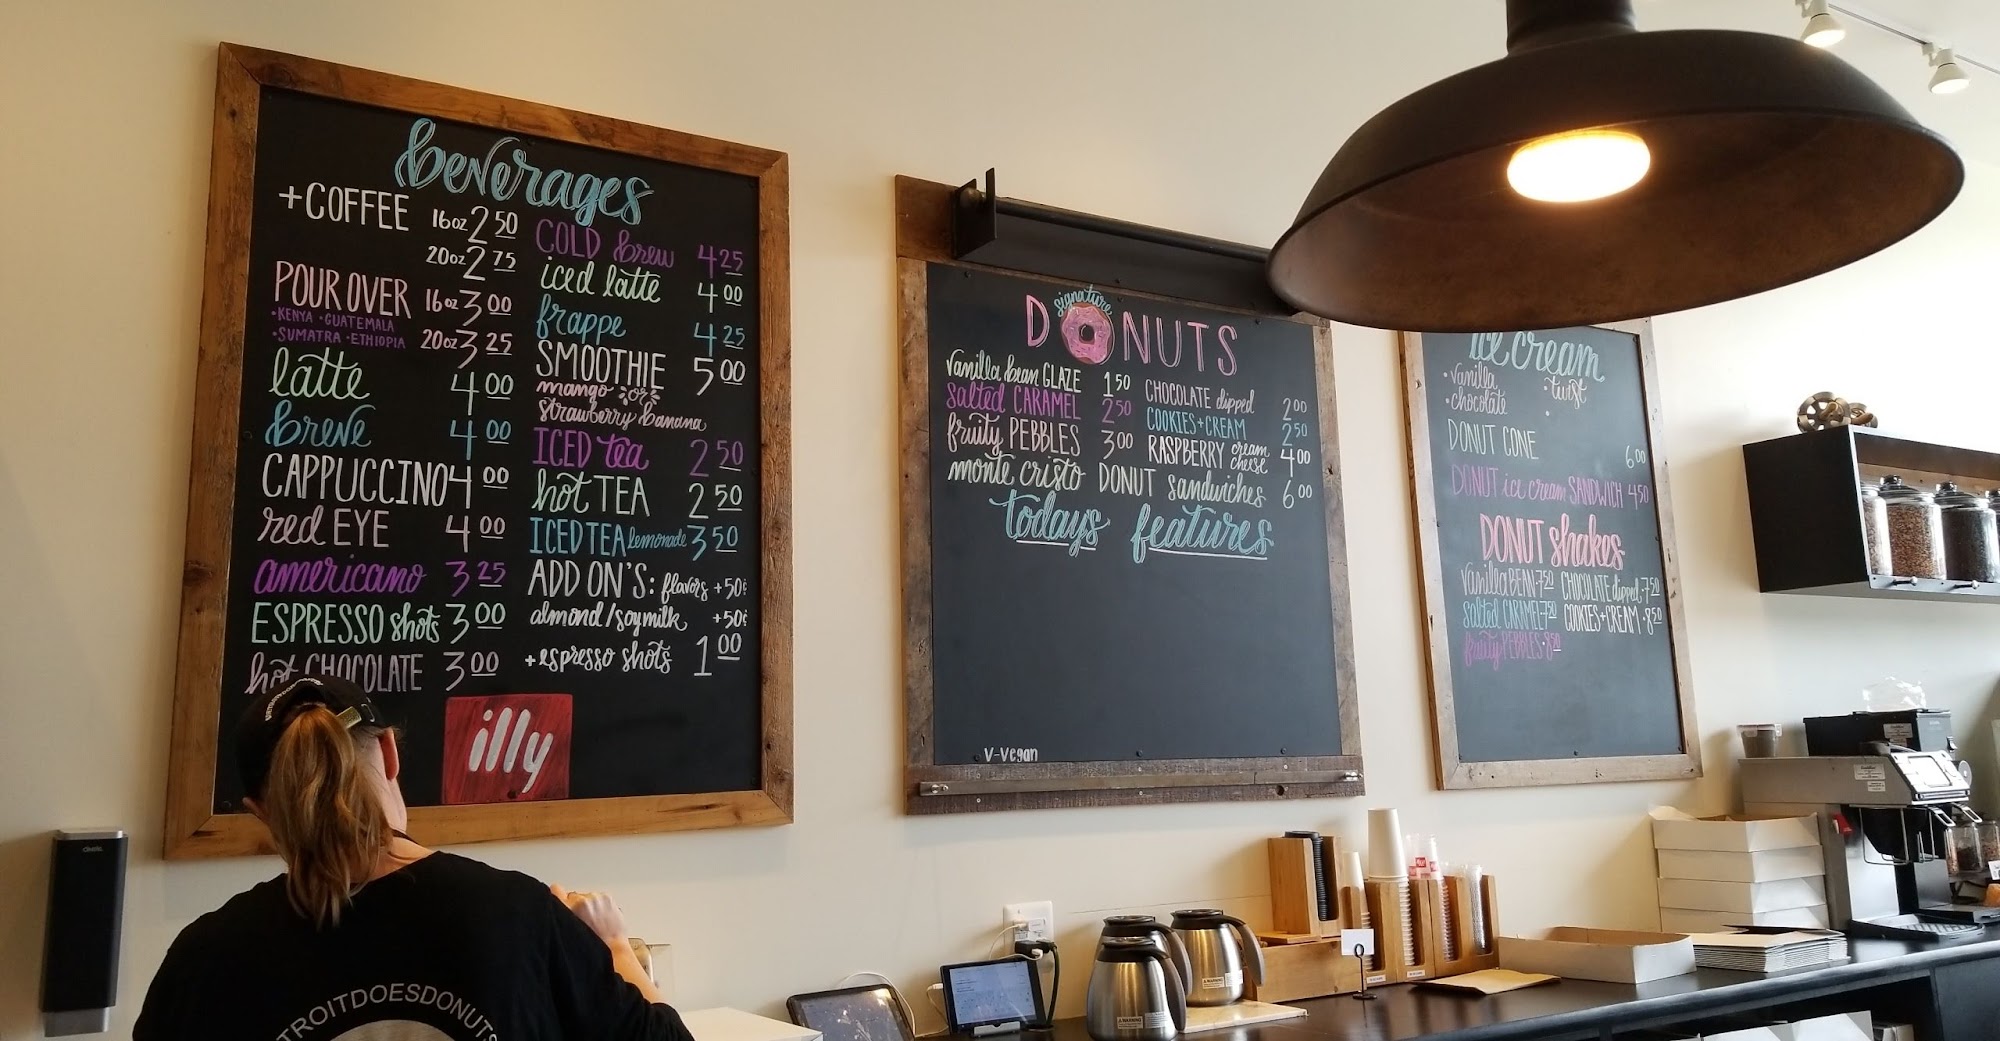 beverages
+COFFEE 16oz 2 50
20oz 2 75
POUR OVER 16oz 3 00
•KENYA •GUATEMALA
•SUMATRA •ETHIOPIA 20oz 3 25
latte 4 00
breve 4 00
CAPPUCCINO 4 00
red EYE 4 00
americano 3 25
ESPRESSO shots 3 00
hot CHOCOLATE 3 00
COLD brew 4 25
iced latte 4 00
frappe 4 25
SMOOTHIE 5 00
mango or
strawberry banana
ICED tea 2 50
hot TEA 2 50
ICED TEA lemonade 3 50
ADD ON'S: flavors +50¢
almond/soymilk +50¢
+espresso shots 1 00
illy
signature
DONUTS
vanilla bean GLAZE 1 50
salted CARAMEL 2 50
fruity PEBBLES 3 00
CHOCOLATE dipped 2 00
COOKIES+CREAM 2 50
RASPBERRY cream cheese 4 00
monte cristo DONUT sandwiches 6 00
todays features
V-Vegan
ice cream
•vanilla •twist
•chocolate
DONUT CONE 6 00
DONUT ice cream SANDWICH 4 50
DONUT shakes
vanilla BEAN•7 50 CHOCOLATE dipped•7 50
salted CARAMEL•7 50 COOKIES+CREAM•8 50
fruity PEBBLES•8 50
TROITDOESDONUTS
WARNING
WARNING